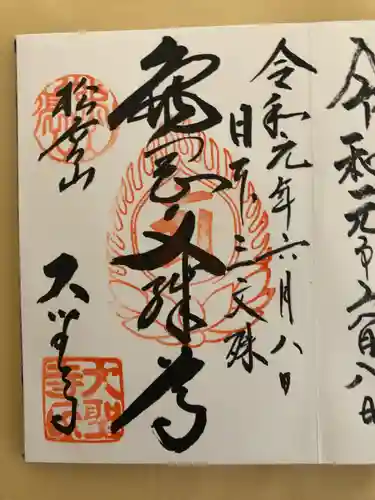 令和元年六月八日
日本三文殊
亀岡文殊尊
松高山
大聖寺
大聖
寺印
令和元年六月八日